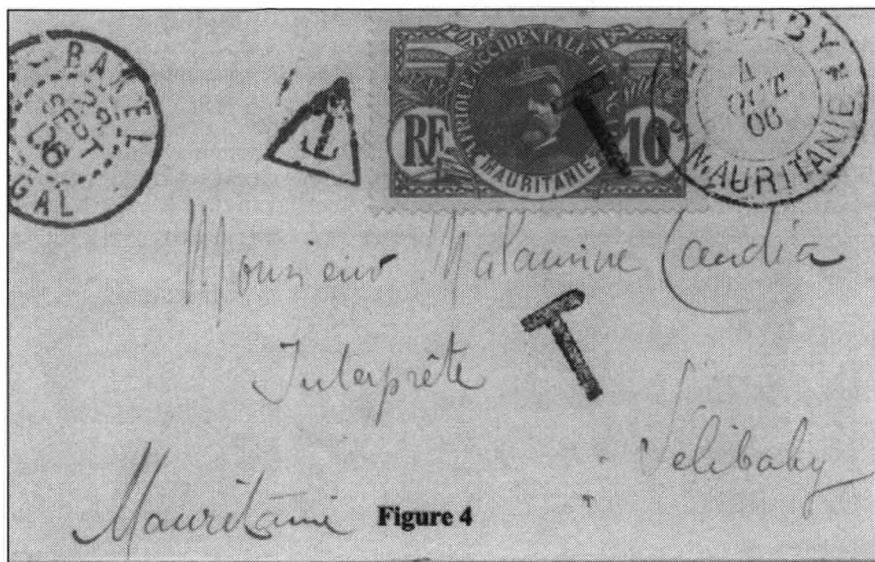 BAKEL
29
SEPT
06
GAL
T
POSTES
AFRIQUE OCCIDENTALE FRANÇAISE
RF
10
MAURITANIE
T
BABY
4
OCT
06
MAURITANIE
Monsieur Malamine Candia
Interprête
T
Sélibaby
Mauritanie
Figure 4